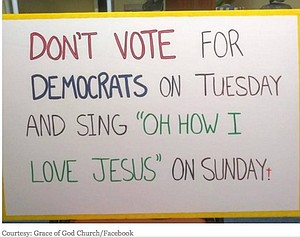 DON'T VOTE FOR
DEMOCRATS ON TUESDAY
AND SING "OH HOW I
LOVE JESUS" ON SUNDAY!
Courtesy: Grace of God Church/Facebook